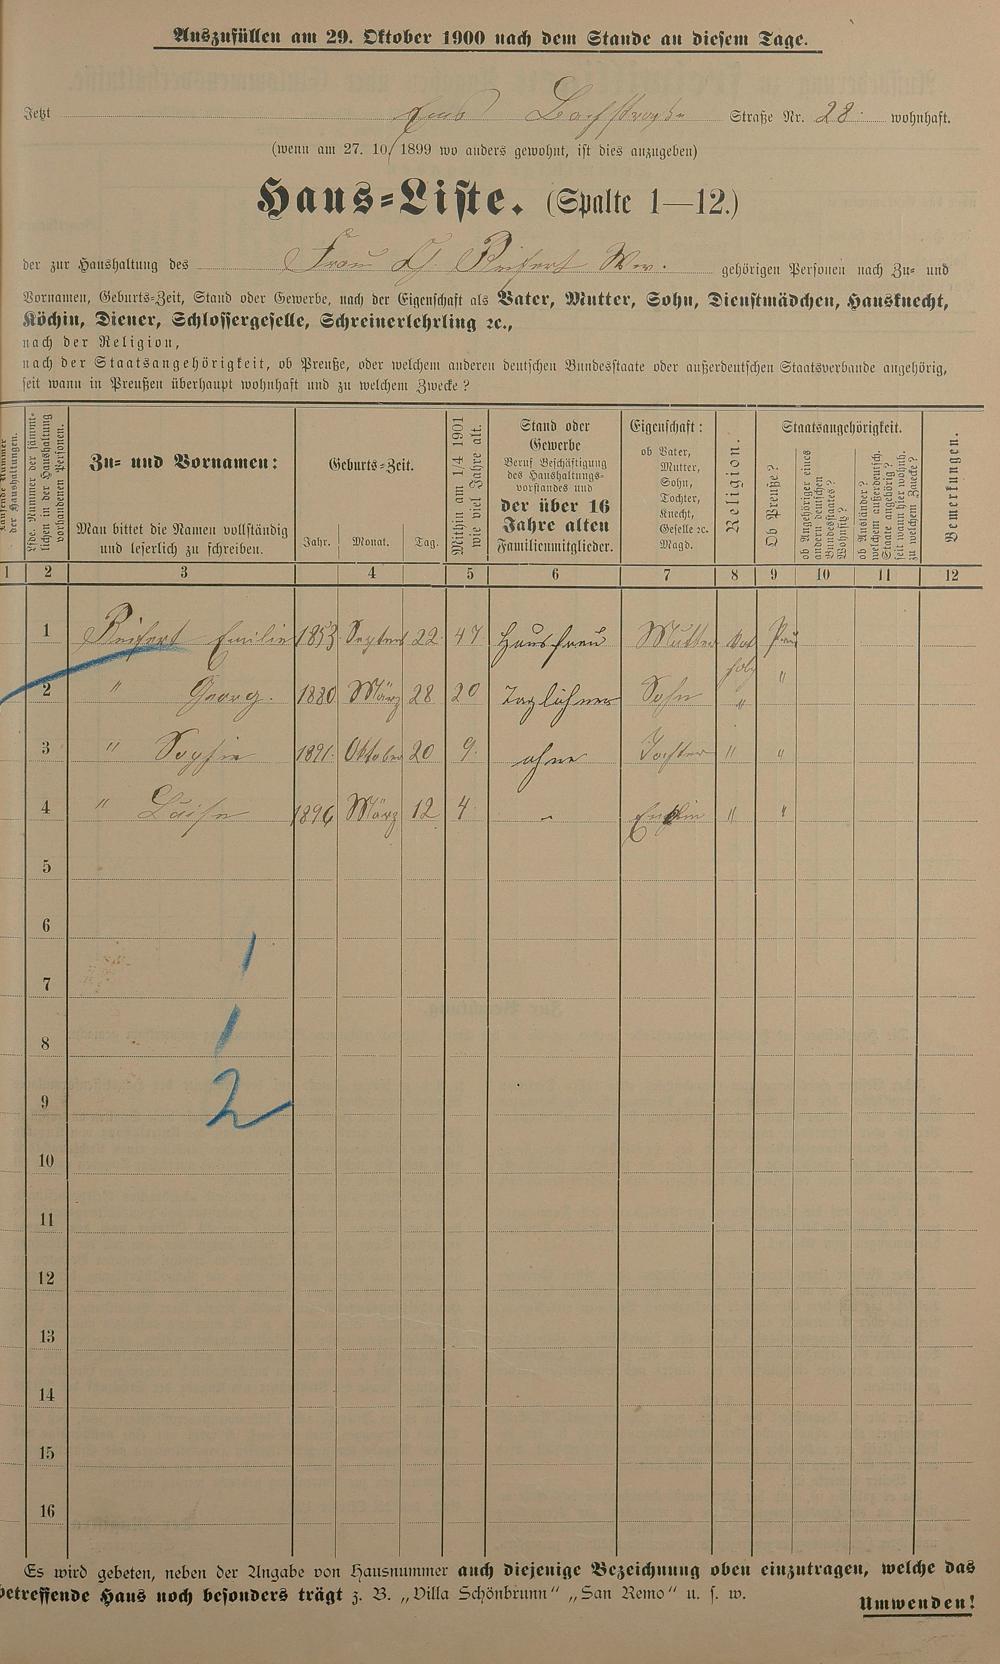 Auszufüllen am 29. Oktober 1900 nach dem Stande an diesem Tage.
Jetzt Ems Bachstraße Straße Nr. 28 wohnhaft.
(wenn am 27. 10/1899 wo anders gewohnt, ist dies anzugeben)
Haus-Liste. (Spalte 1—12.)
der zur Haushaltung des Frau G. Reifert Ww. gehörigen Personen nach Zu- und
Vornamen, Geburts-Zeit, Stand oder Gewerbe, nach der Eigenschaft als Vater, Mutter, Sohn, Dienstmädchen, Hausknecht,
Köchin, Diener, Schlossergeselle, Schreinerlehrling ꝛc.,
nach der Religion,
nach der Staatsangehörigkeit, ob Preuße, oder welchem anderen deutschen Bundesstaate oder außerdeutschen Staatsverbande angehörig,
seit wann in Preußen überhaupt wohnhaft und zu welchem Zwecke?
Laufende Nummer
der Haushaltungen.
Lfde. Nummer der sämmt-
lichen in der Haushaltung
vorhandenen Personen.
Zu- und Vornamen:
Man bittet die Namen vollständig
und leserlich zu schreiben.
Geburts-Zeit.
Jahr. Monat. Tag.
Mithin am 1/4 1901
wie viel Jahre alt.
Stand oder
Gewerbe
Beruf Beschäftigung
des Haushaltungs-
vorstandes und
der über 16
Jahre alten
Familienmitglieder.
Eigenschaft:
ob Vater,
Mutter,
Sohn,
Tochter,
Knecht,
Geselle ꝛc.
Magd.
Religion.
Staatsangehörigkeit.
Ob Preuße?
ob Angehöriger eines
andern deutschen
Bundesstaates?
Wohnsitz?
ob Ausländer?
welchem außerdeutsch.
Staate angehörig?
seit wann hier wohnh.
zu welchem Zwecke?
Bemerkungen.
1 2 3 4 5 6 7 8 9 10 11 12
1 Reifert Emilie 1853 Septem 22 47 Hausfrau Mutter Kat Preu
holf
2 " Georg. 1880 März 28 20 Taglöhner Sohn " "
3 " Sophie 1891. Oktober 20 9. ohne Tochter " "
4 " Luise 1896 März 12 4 - Enklin " "
5
6
1
7
1
8
2
9
10
11
12
13
14
15
16
Es wird gebeten, neben der Angabe von Hausnummer auch diejenige Bezeichnung oben einzutragen, welche das
betreffende Haus noch besonders trägt z. B. „Villa Schönbrunn" „San Remo" u. s. w.
Umwenden!